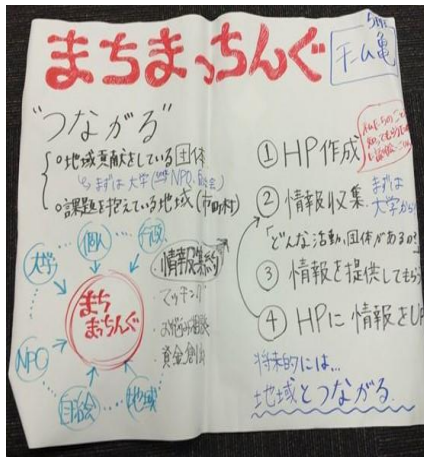 まちまっちんぐ
5班
チーム亀
"つながる"
○地域貢献をしている団体
まずは大学(NPO、自治会)
○課題を抱えている地域(市町村)
大学
個人
行政
NPO
自治会
地域
まち
まっちんぐ
情報集約
マッチング
お悩み相談
資金創出
①HP作成
②情報収集
まずは
大学から
「どんな活動、団体があるの?
③情報を提供してもらう
④HPに情報をUP
将来的には…
地域とつながる